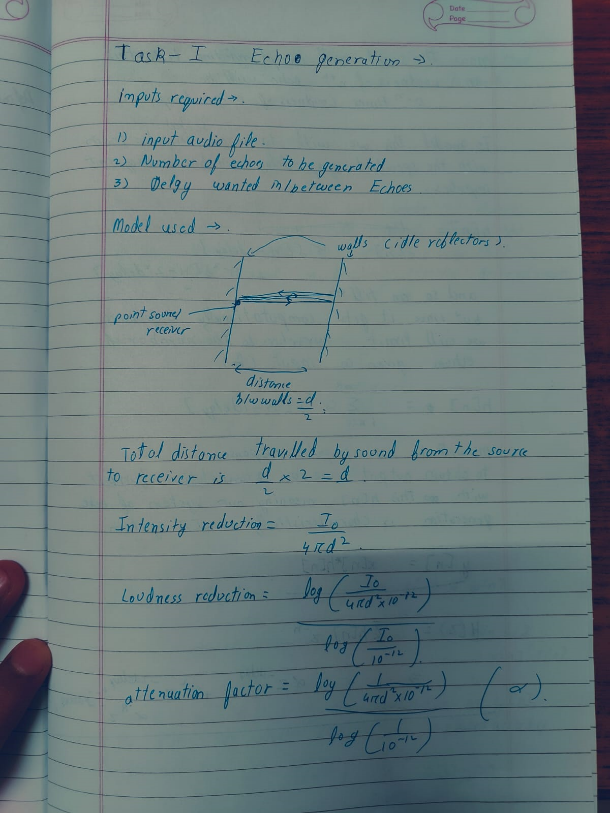 Date
Page
Task - I Echoo generation →.
inputs required →.
1) input audio file.
2) Number of echoes to be generated
3) Delay wanted in/between Echoes
Model used →.
walls (idle reflectors).
point sound
receiver
distance
b/w walls = d/2.
Total distance travelled by sound from the source
to receiver is d/2 × 2 = d.
Intensity reduction = I₀ / 4πd².
Loudness reduction = log (I₀ / 4πd²×10⁻¹²) / log (I₀ / 10⁻¹²).
attenuation factor = log (1 / 4πd²×10⁻¹²) / log (1 / 10⁻¹²) (α).